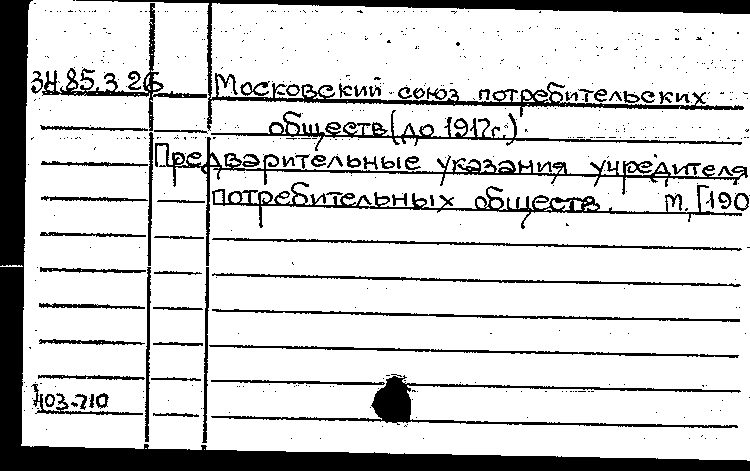 34.85.3.26 Московский союз потребительских
обществ (до 1917г.)
Предварительные указания учредителя
потребительных обществ. М., [190
403-710